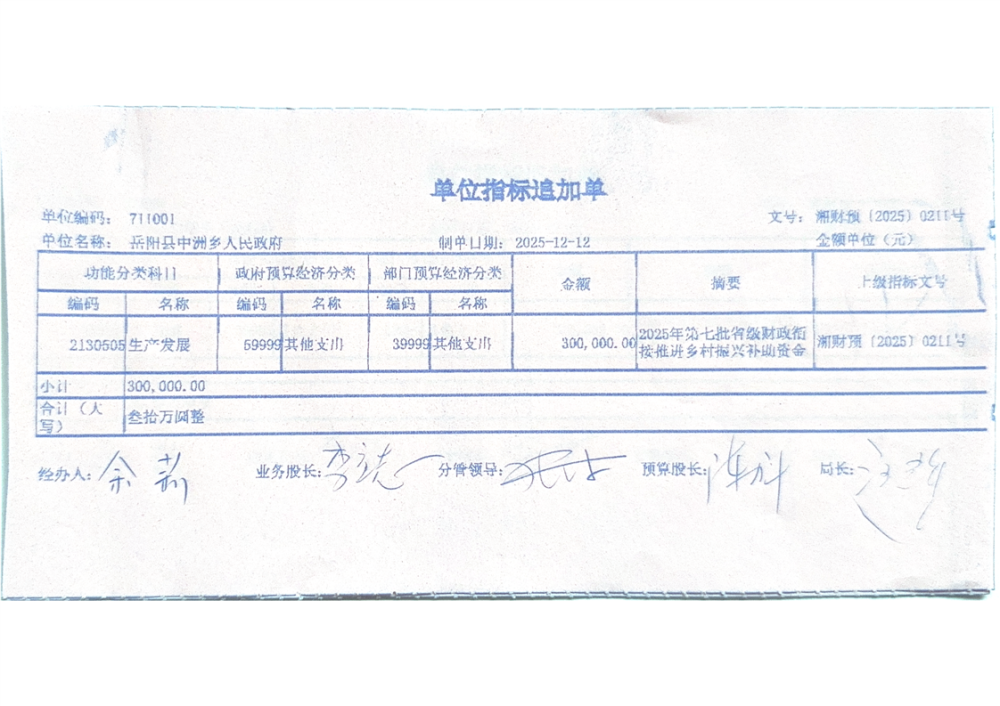 单位指标追加单
单位编码： 711001 文号： 湘财预〔2025〕0211号
单位名称： 岳阳县中洲乡人民政府 制单日期： 2025-12-12 金额单位（元）
功能分类科目 政府预算经济分类 部门预算经济分类 金额 摘要 上级指标文号
编码 名称 编码 名称 编码 名称
2130505 生产发展 59999 其他支出 39999 其他支出 300,000.00 2025年第七批省级财政衔 湘财预〔2025〕0211号
接推进乡村振兴补助资金
小计 300,000.00
合计（大 叁拾万圆整
写）
经办人： 余莉 业务股长： 分管领导： 预算股长： 局长：